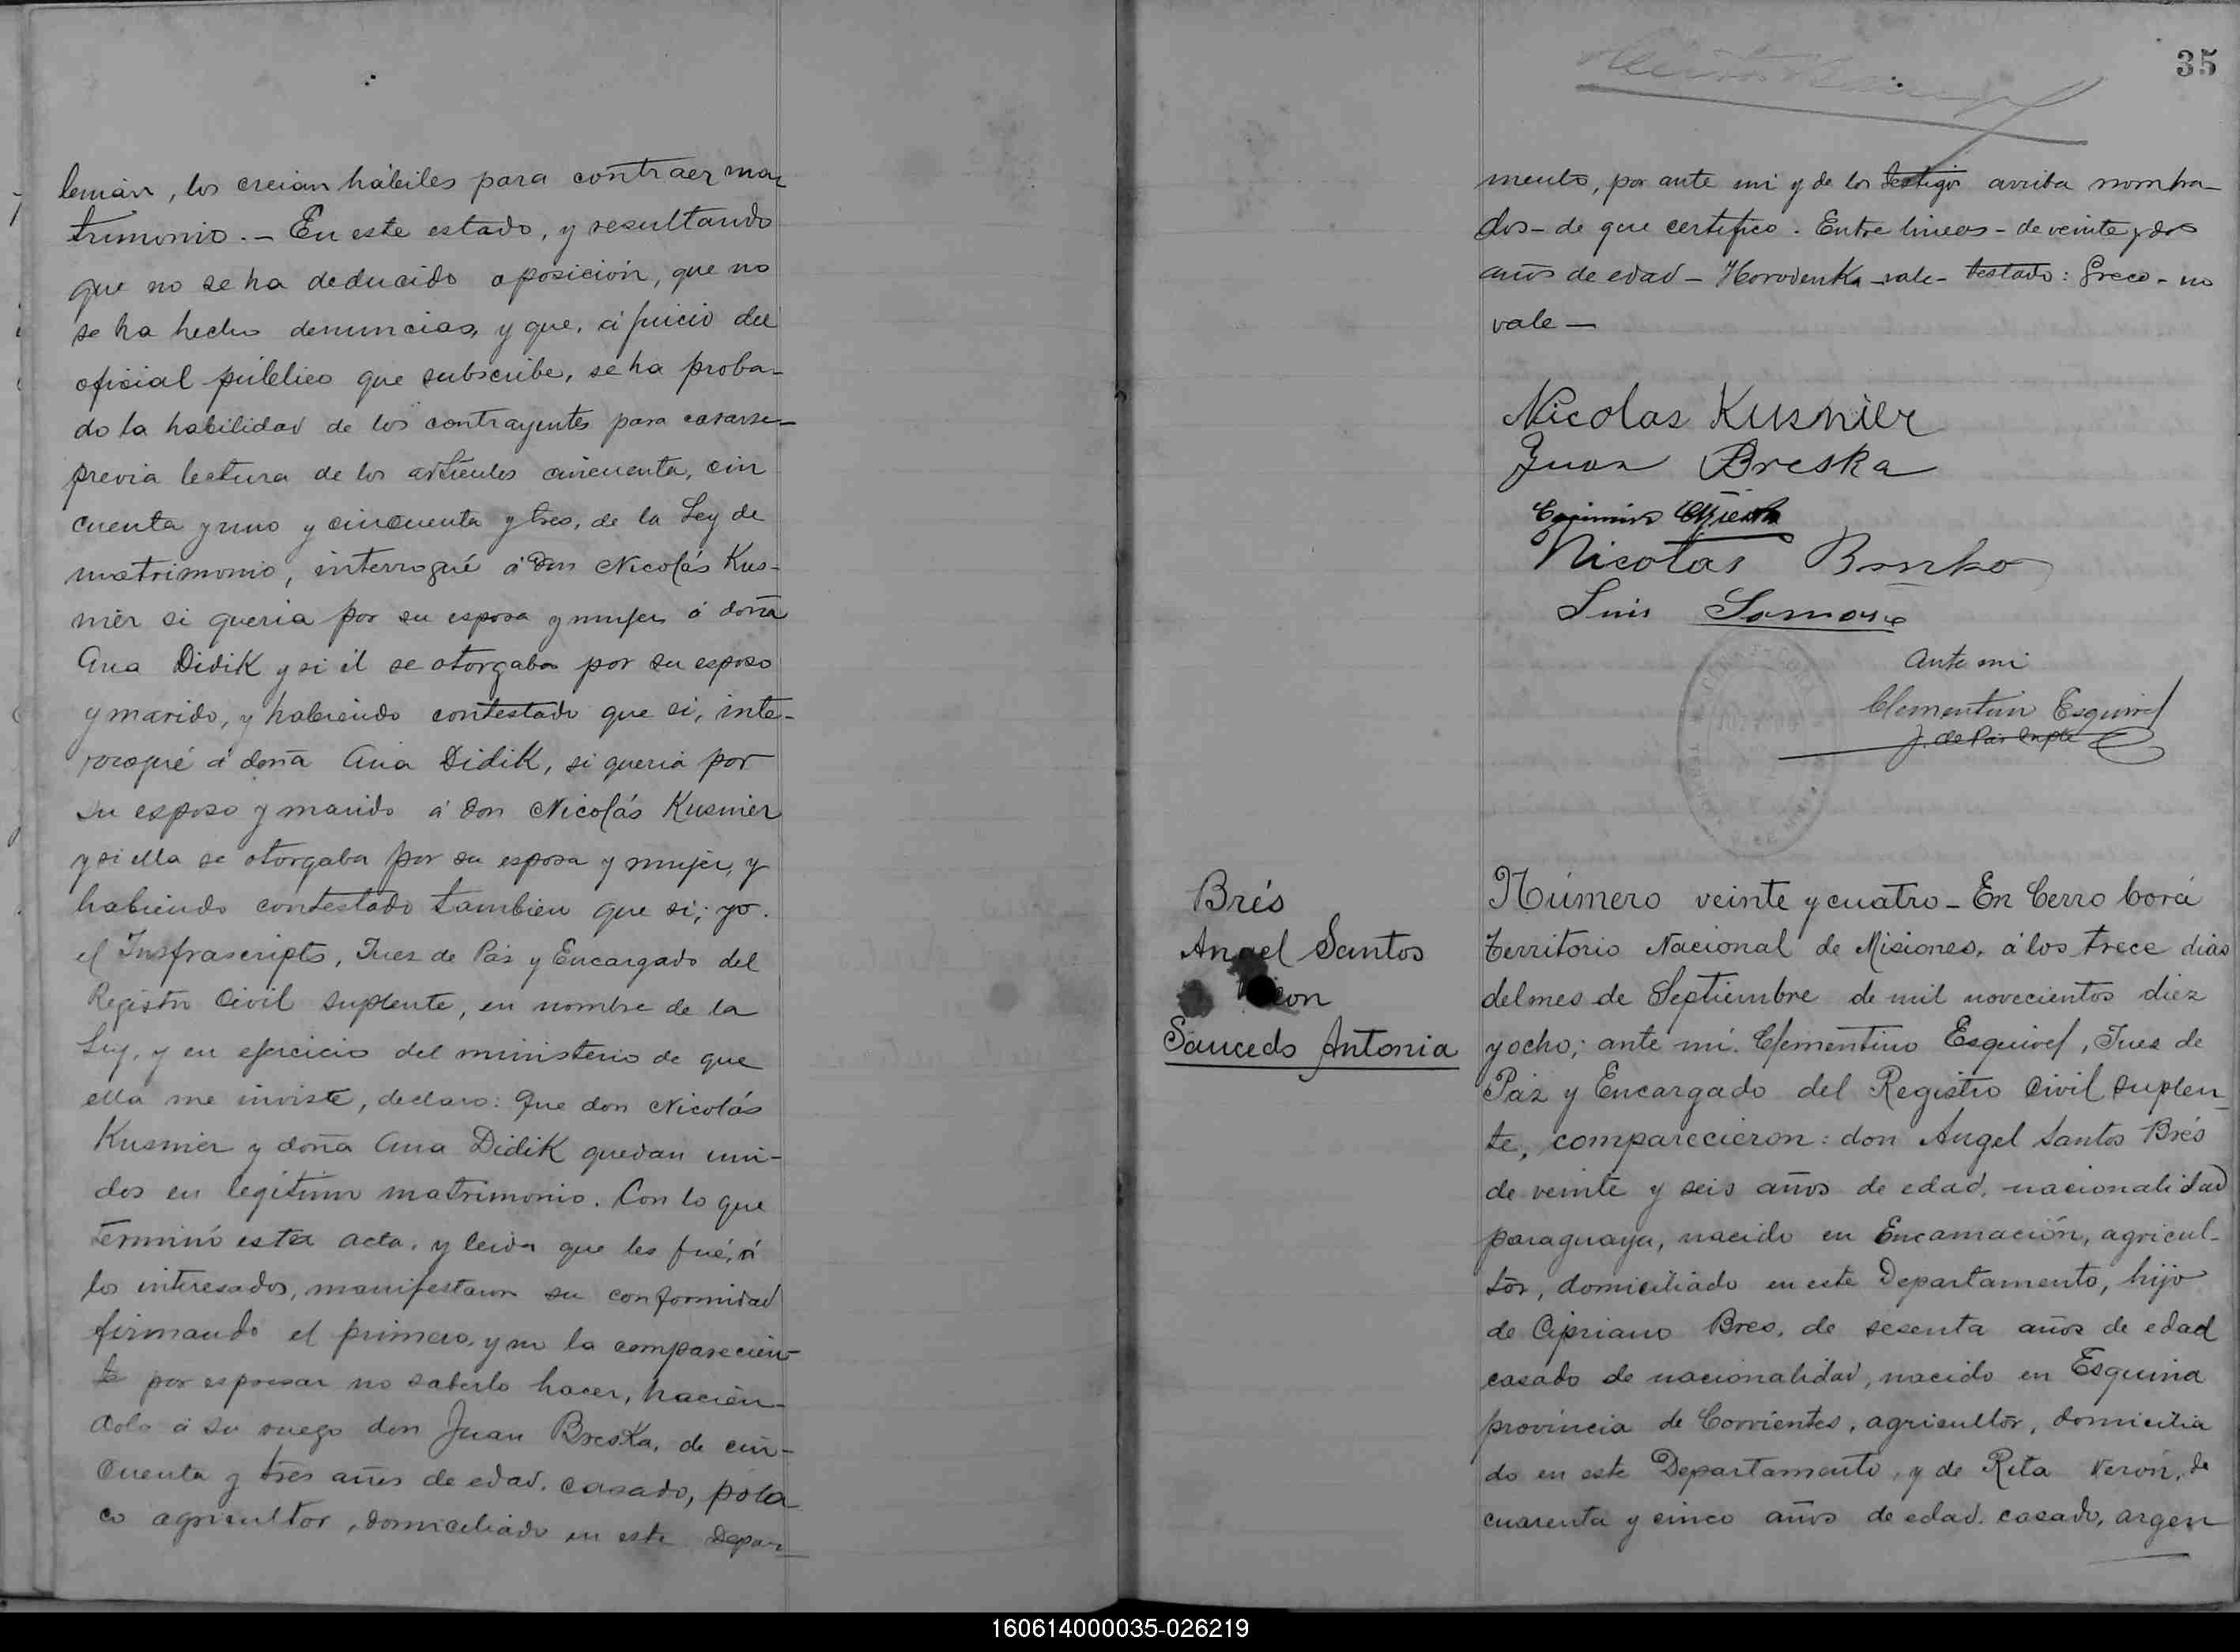 lemán, los creian hábiles para contraer ma-
trimonio.- En este estado, y resultando
que no se ha deducido oposición, que no
se ha hecho denuncias, y que, á juicio del
oficial público que subscribe, se ha proba-
do la habilidad de los contrayentes para casarse-
previa lectura de los artículos cincuenta, cin
cuenta y uno y cincuenta y tres, de la Ley de
matrimonio, interrogué á Don Nicolás Kus-
nier si queria por su esposa y mujer á doña
Ana Didik y si él se otorgaba por su esposo
y marido, y habiendo contestado que si, inte-
rrogué á doña Ana Didik, si queria por
su esposo y marido á don Nicolás Kusnier
y si ella se otorgaba por su esposa y mujer, y
habiendo contestado tambien que si; yo.
el Insfrascripto, Juez de Paz y Encargado del
Registro Civil suplente, en nombre de la
Ley, y en ejercicio del ministerio de que
ella me inviste, declaro: Que don Nicolás
Kusnier y doña Ana Didik quedan uni-
dos en legítimo matrimonio. Con lo que
terminó esta acta, y leida que les fué, á
los interesados, manifestaron su conformidad
firmando el primero, y no la comparecien-
te por espresar no saberlo hacer, hacien-
dolo á su ruego don Juan Breska, de cin-
cuenta y tres años de edad, casado, pola
co agricultor, domiciliado en este Depar-
35
mento, por ante mi y de los testigos arriba nombra-
dos- de que certifico. Entre lineas - de veinte y dos
años de edad - Horodenka - vale - testado: Greco - no
vale -
Nicolas Kusnier
Juan Breska
Nicolas
Luis
Ante mi
Clementino Esquivel
J. de Paz Suplte
Brés
Angel Santos
con
Saucedo Antonia
Número veinte y cuatro - En Cerro Corá
Territorio Nacional de Misiones, á los trece dias
del mes de Septiembre de mil novecientos diez
y ocho; ante mí. Clementino Esquivel, Juez de
Paz y Encargado del Registro Civil suplen-
te, comparecieron: don Angel Santos Brés
de veinte y seis años de edad, nacionalidad
paraguaya, nacido en Encarnación, agricul-
tor, domiciliado en este Departamento, hijo
de Cipriano Bres, de sesenta años de edad
casado de nacionalidad, nacido en Esquina
provincia de Corrientes, agricultor, domicilia
do en este Departamento, y de Rita Verón, de
cuarenta y cinco años de edad, casado, argen
160614000035-026219